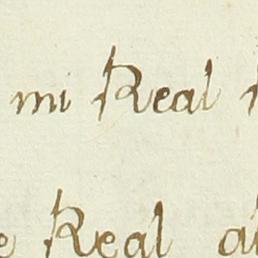 mi Real
Real